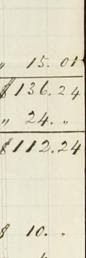 " 15.01
$136.24
" 24. "
$112.24
$ 10. "